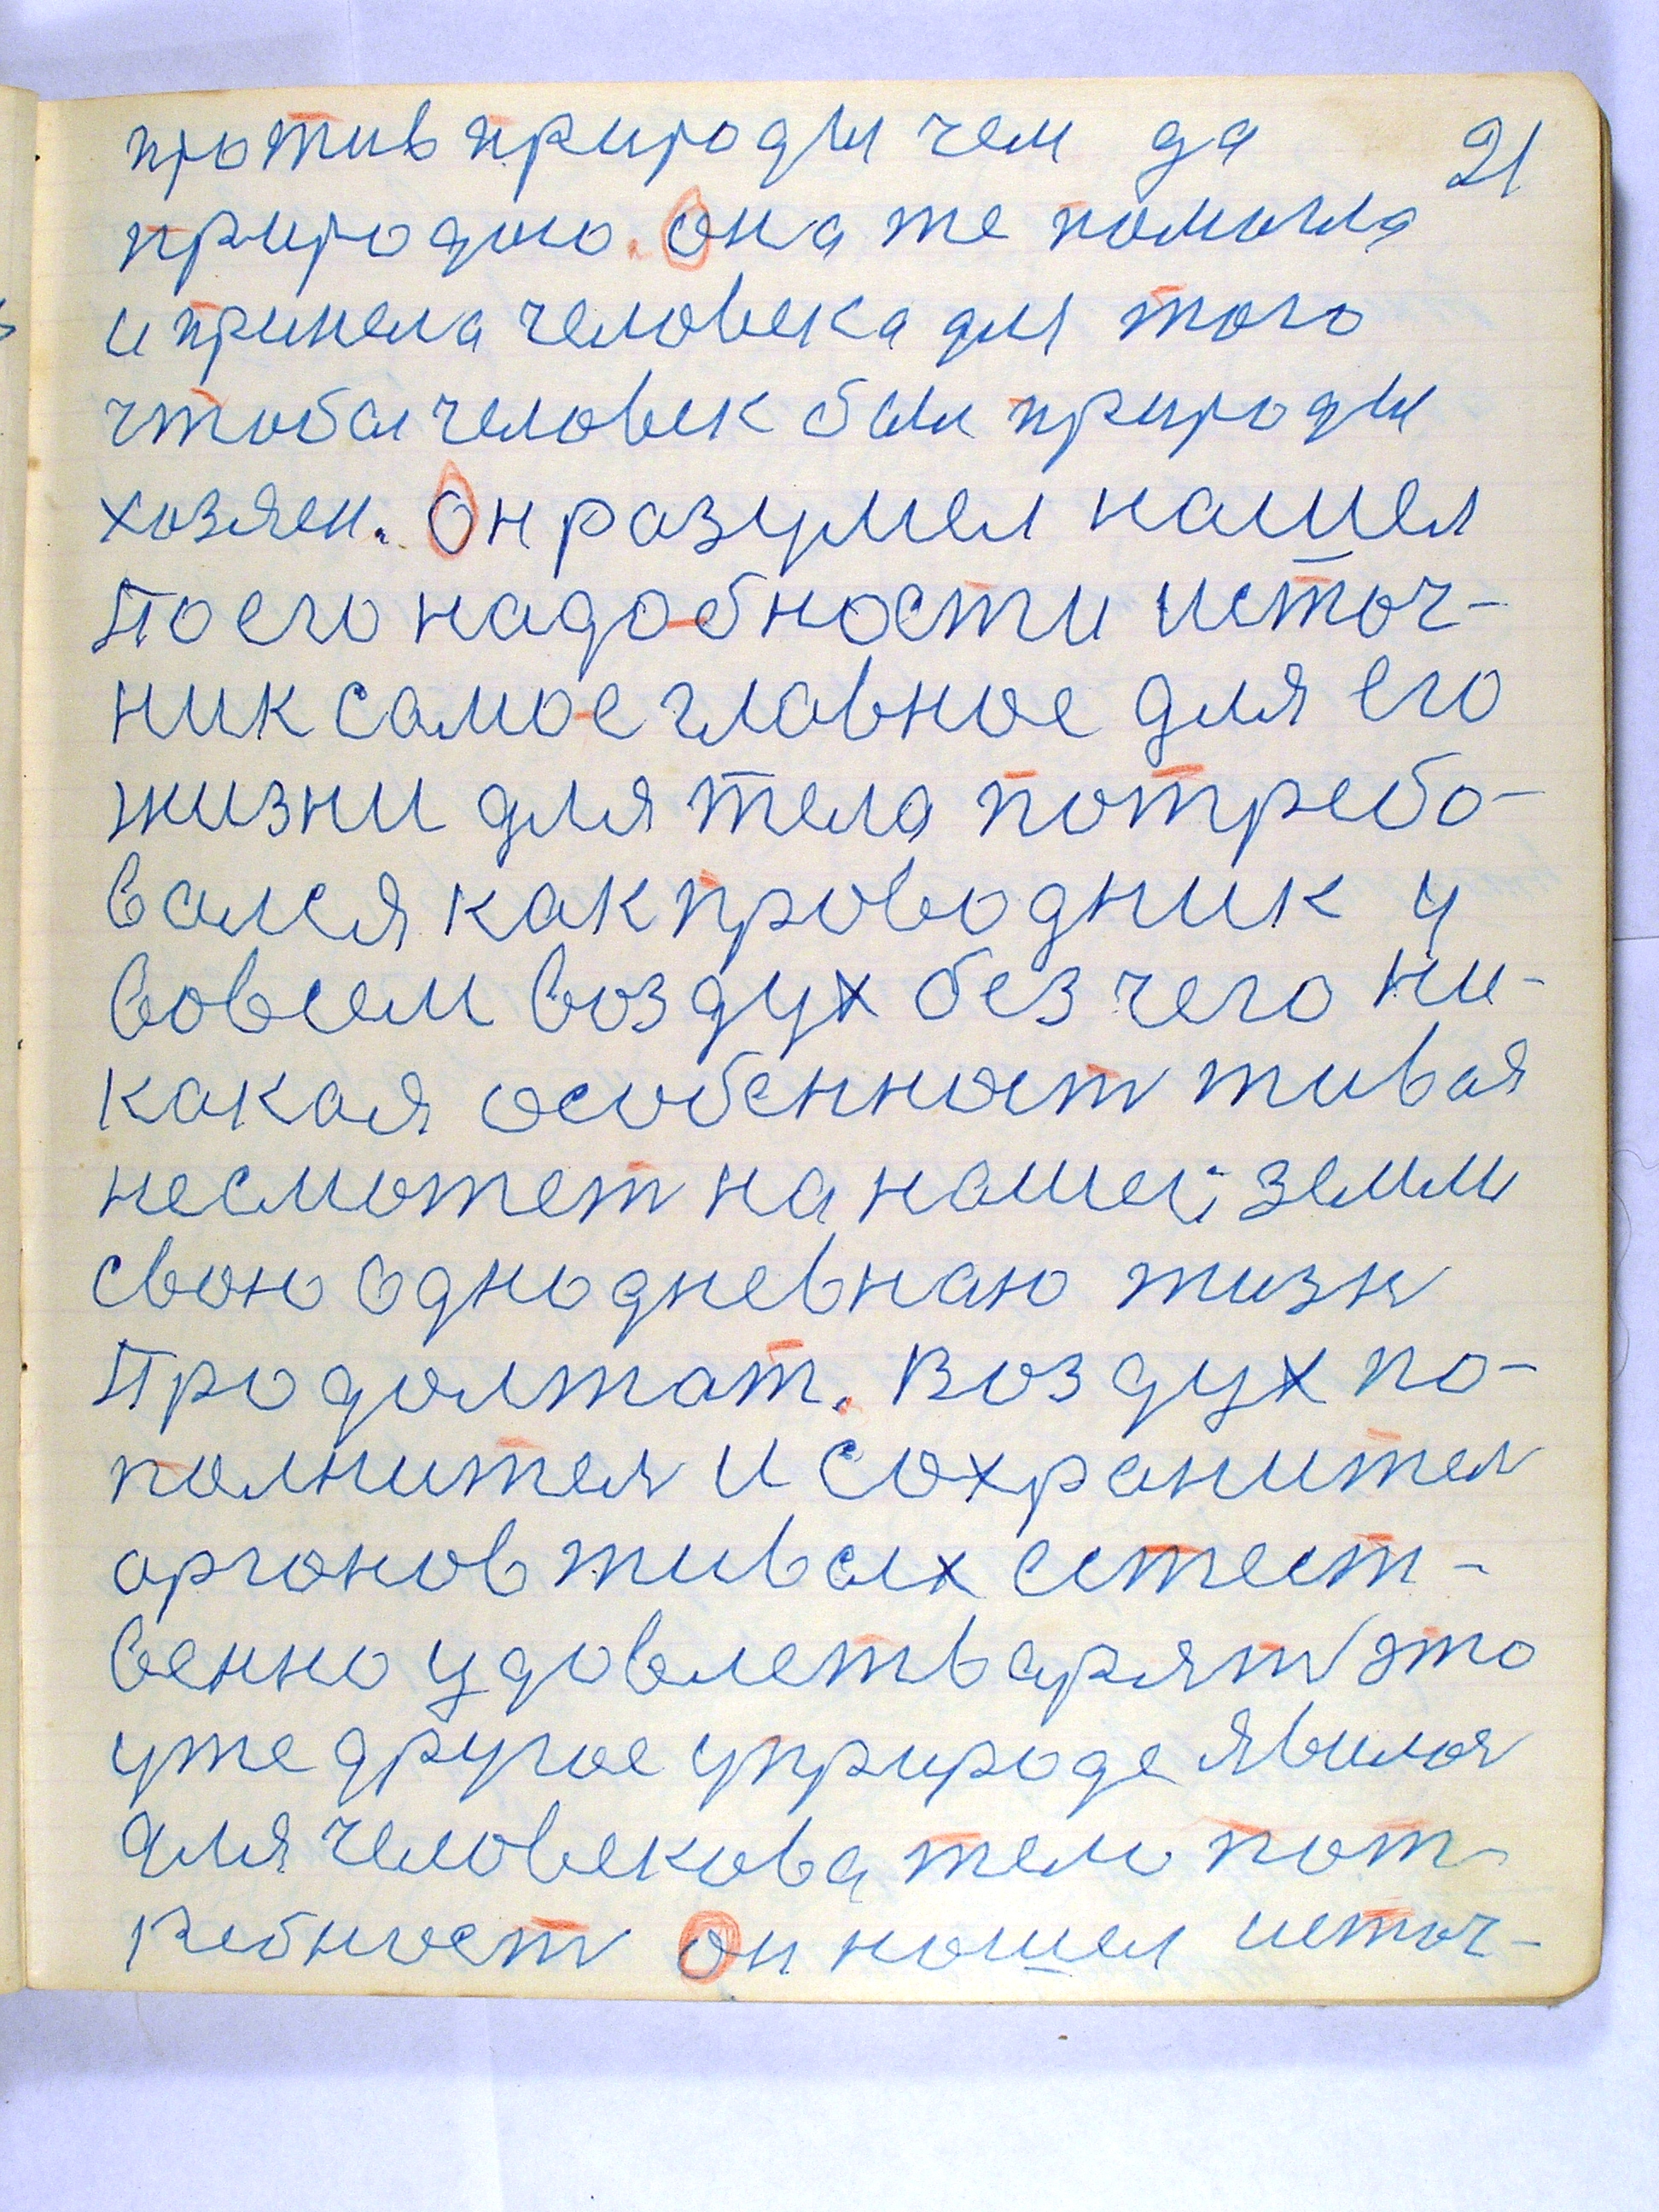 против природы чем да 21
природою. Она же помогла
и принела человека для того
чтобы человек был природы
хозяен. Он разумел нашел
По его надобности источ-
ник самое главное для его
жизни для тела потребо-
вался как проводник у
вовсем воздух без чего ни-
какая особенност живая
несможет на нашей земли
свою однодневнаю жизн
Продолжат. Воздух по-
полнител и сохранител
органов живых естест-
венно удовлетварят это
уже другое уприроде явилос
для человекова тело пот-
ребност Он нашел источ-